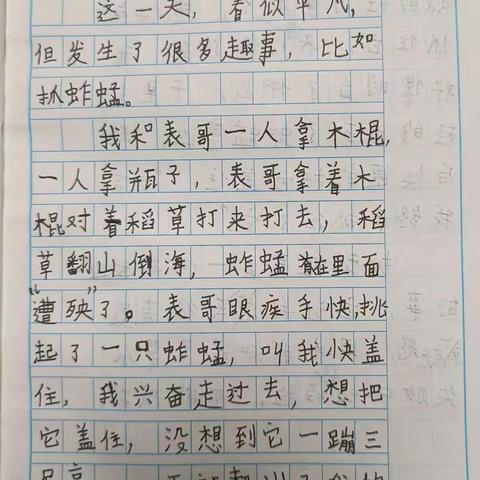 这一天，看似平凡，
但发生了很多趣事，比如
抓蚱蜢。
我和表哥一人拿木棍，
一人拿瓶子，表哥拿着木
棍对着稻草打来打去，稻
草翻山倒海，蚱蜢在里面
“遭殃”了。表哥眼疾手快，挑
起了一只蚱蜢，叫我快盖
住，我兴奋走过去，想把
它盖住，没想到它一蹦三
尺高